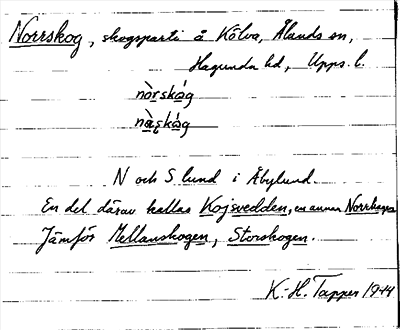 Norrskog, skogsparti å Kölva, Ålands sn,
Hagunda hd, Upps. l.
nòrskóg
nàʂkóg
N och S lund i Åbylund.
En del därav kallas Kojsvedden, en annan Norrskogen
Jämför Mellanskogen, Storskogen.
K.-H. Tapper 1944